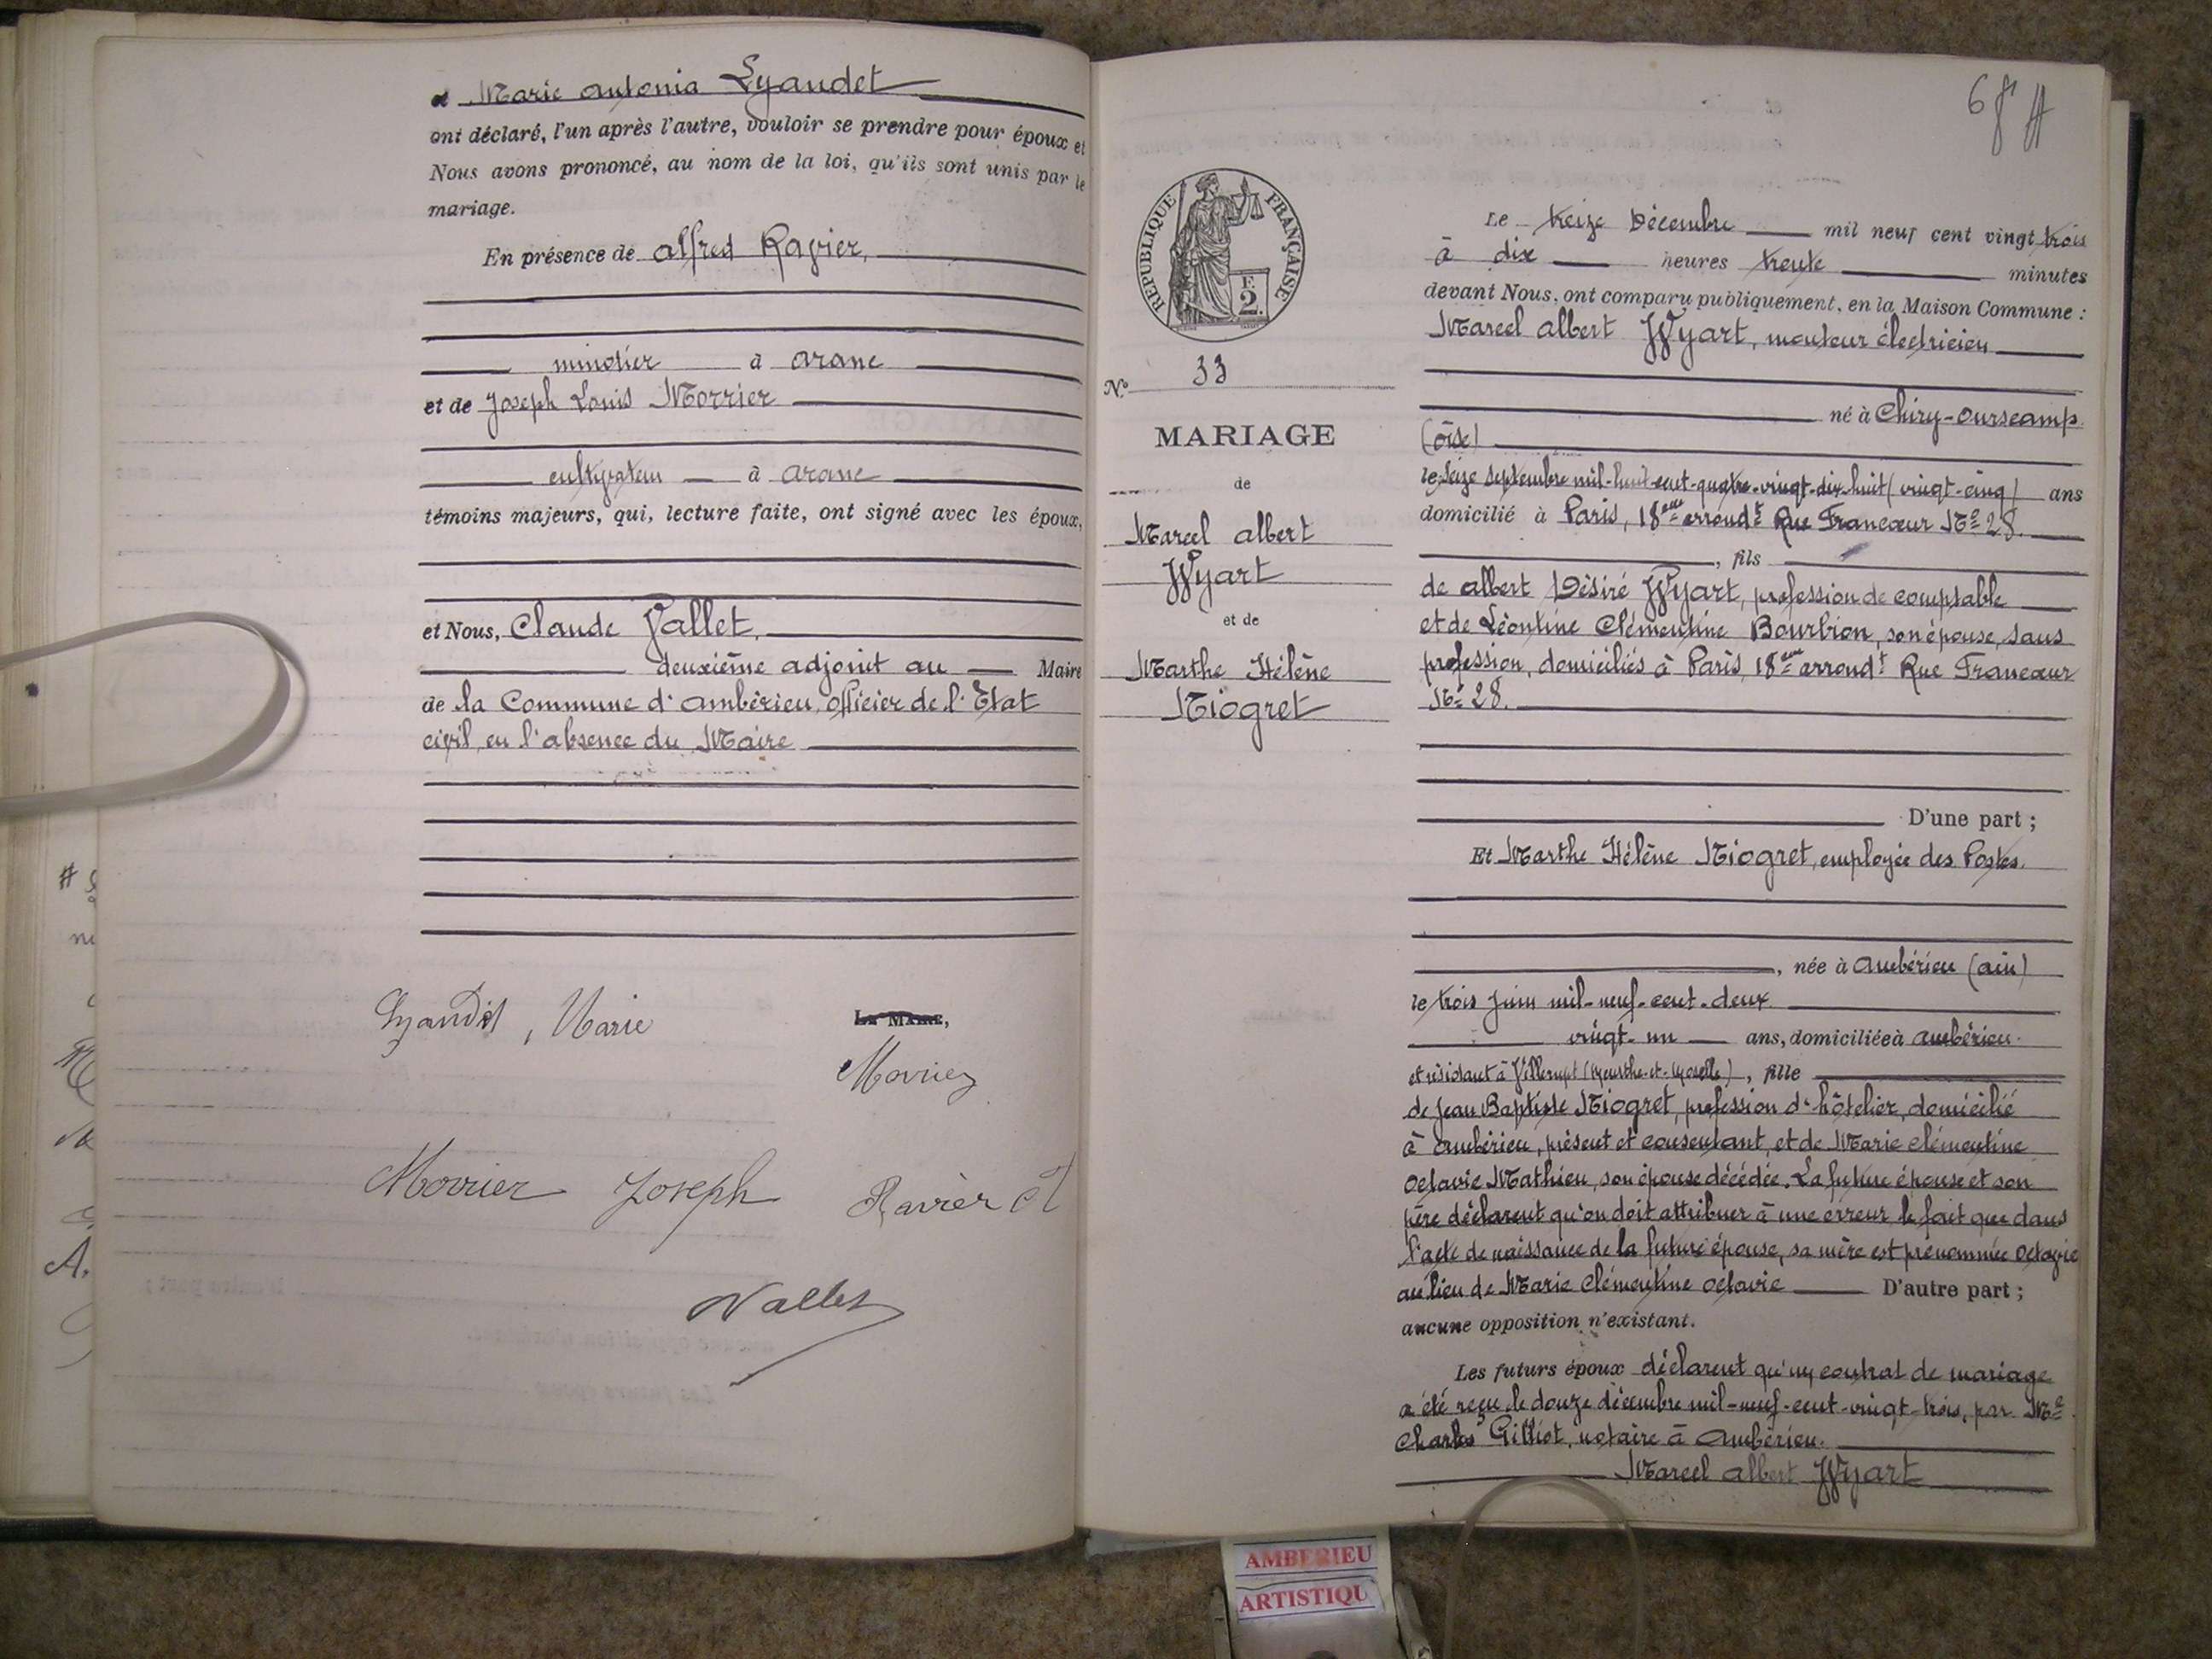 et Marie Antonia Lyaudet
ont déclaré, l'un après l'autre, vouloir se prendre pour époux et
Nous avons prononcé, au nom de la loi, qu'ils sont unis par le
mariage.
En présence de Alfred Ravier,
minotier à Aranc
et de Joseph Louis Morrier
cultivateur à Aranc
témoins majeurs, qui, lecture faite, ont signé avec les époux,
et Nous, Claude Vallet,
deuxième adjoint au Maire
de la Commune d'Ambérieu, officier de l'Etat
civil, en l'absence du Maire
Lyaudet, Marie
LE MAIRE,
Morrier
Morrier Joseph Ravier A
Vallet
68 #
REPUBLIQUE FRANÇAISE
F.
2.
N° 33
MARIAGE
de
Marcel Albert
Wyart
et de
Marthe Hélène
Niogret
Le treize Décembre mil neuf cent vingt trois
à dix heures trente minutes
devant Nous, ont comparu publiquement, en la Maison Commune :
Marcel Albert Wyart, monteur électricien
né à Chiry-Ourscamp
(Oise)
le seize septembre mil-huit-cent-quatre-vingt-dix-huit (vingt-cinq) ans
domicilié à Paris, 18ème arrondt Rue Francœur No 28.
, fils
de Albert Désiré Wyart, profession de comptable
et de Léontine Clémentine Bourbion, son épouse, sans
profession, domiciliés à Paris, 18ème arrondt Rue Francœur
No 28.
D'une part ;
Et Marthe Hélène Niogret, employée des Postes.
, née à Ambérieu (Ain)
le trois juin mil-neuf-cent-deux
vingt-un ans, domiciliée à Ambérieu
et résidant à Villerupt (Meurthe-et-Moselle), fille
de Jean Baptiste Niogret, profession d'hôtelier, domicilié
à Ambérieu, présent et consentant, et de Marie Clémentine
Octavie Mathieu, son épouse décédée. La future épouse et son
père déclarent qu'on doit attribuer à une erreur le fait que dans
l'acte de naissance de la future épouse, sa mère est prénommée Octavie
au lieu de Marie Clémentine Octavie D'autre part ;
aucune opposition n'existant.
Les futurs époux déclarent qu'un contrat de mariage
a été reçu le douze décembre mil-neuf-cent-vingt-trois, par Me
Charles Gilliot, notaire à Ambérieu.
Marcel Albert Wyart
AMBERIEU
ARTISTIQU